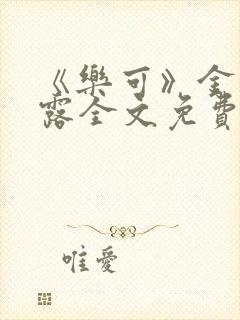 《樂可》金
露全文免費
唯愛